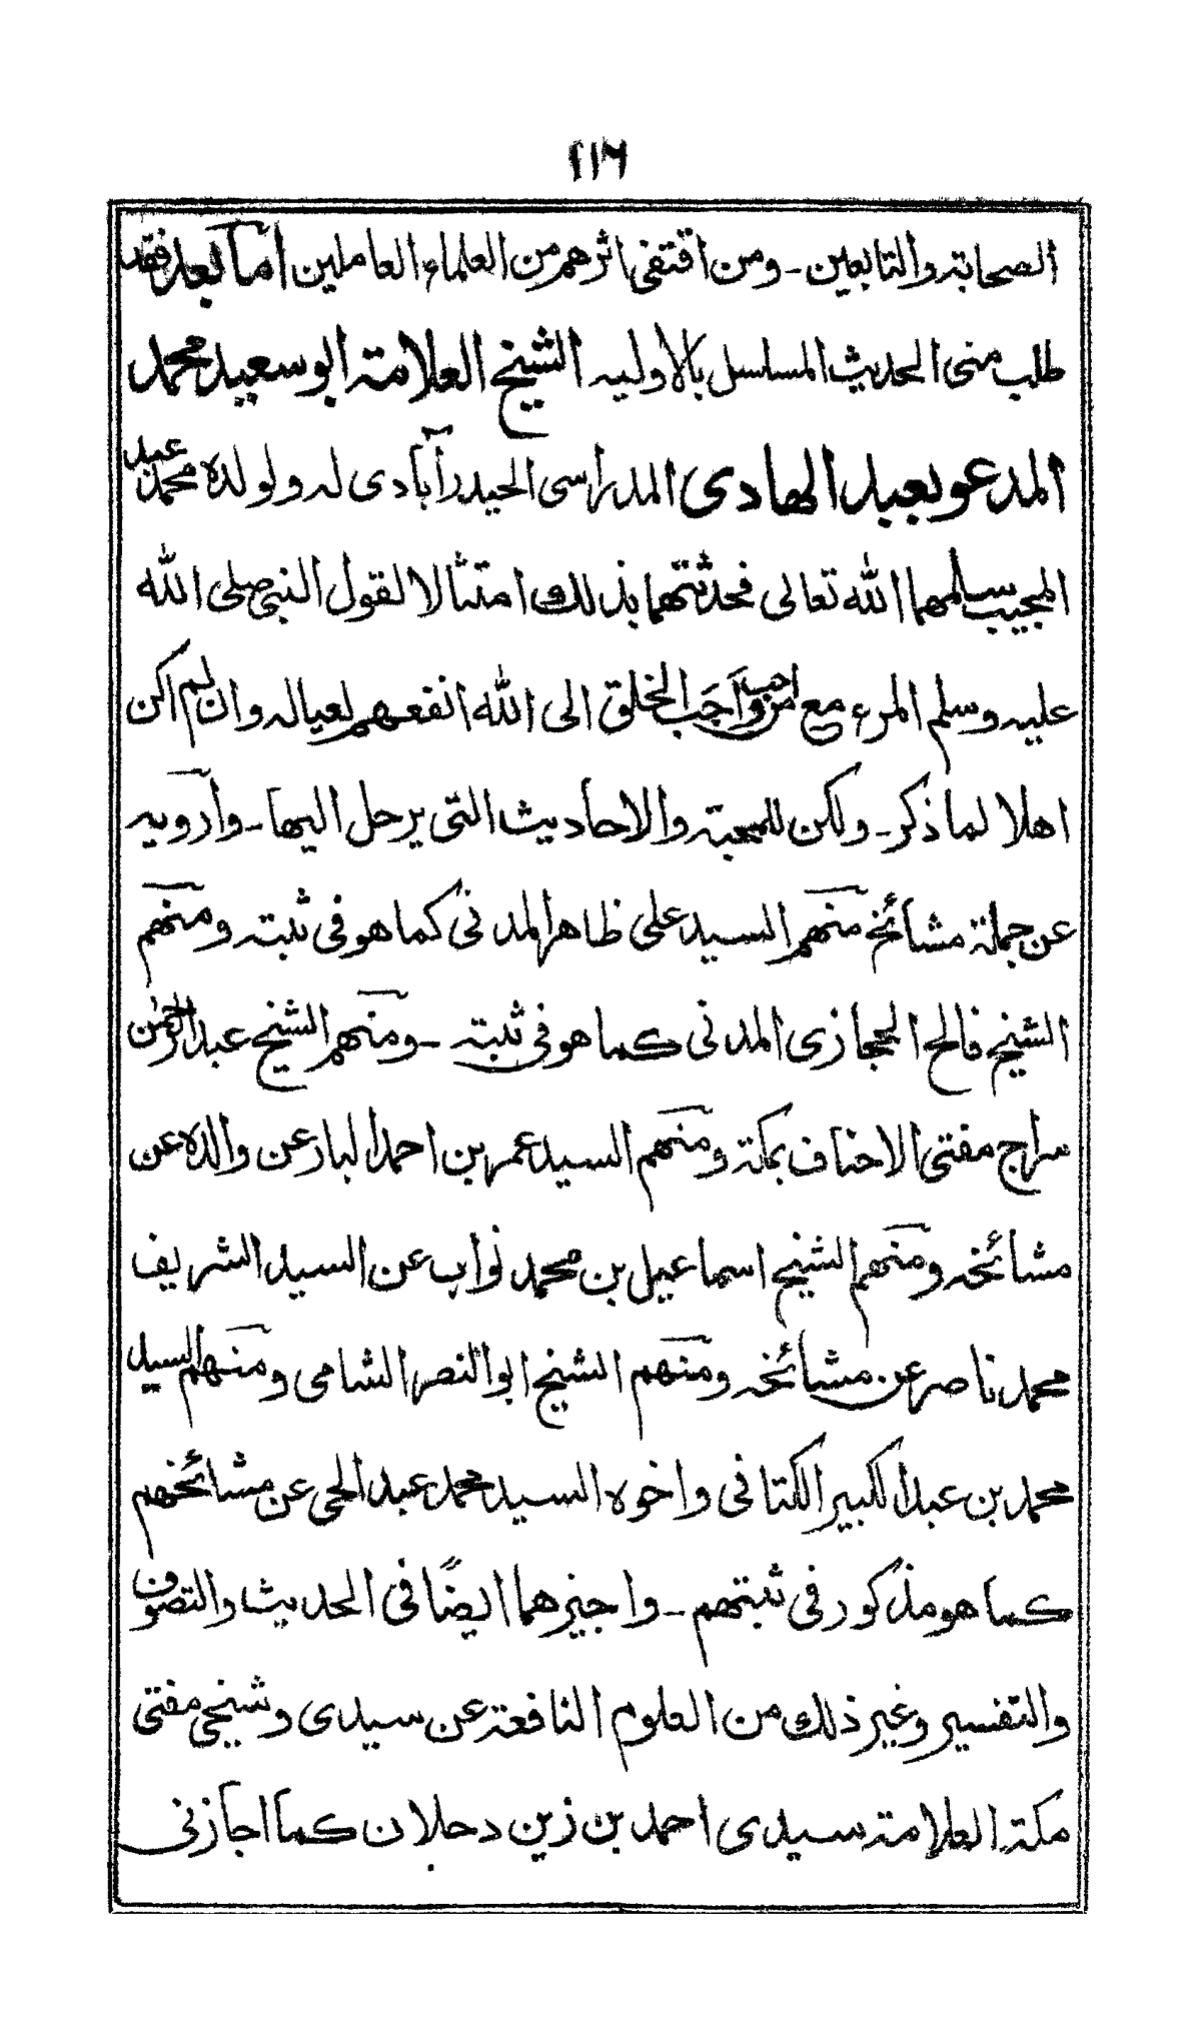 ٢١٦
الصحابة والتابعين ـ ومن اقتفى اثرهم من العلماء العاملين امّا بعد فقد
طلب منى الحديث المسلسل بالاوليه الشيخ العلامة ابو سعيد محمد
المدعو بعبد الهادى المدراسى الحيدرآبادى له ولولده محمد عبد
المجيب سلمهما الله تعالى فحدثتهما بذلك امتثالا لقول النبى صلى الله
عليه وسلم المرء مع من احب واَحَب الخلق الى الله انفعهم لعياله وان لم اكن
اهلا لما ذكر ـ ولكن للمحبة والاحاديث التى يرحل اليها ـ وارويه
عن جملة مشائخ منهم السيد على ظاهر المدنى كما هو فى ثبته ومنهم
الشيخ فالح الحجازى المدنى كما هو فى ثبته ـ ومنهم الشيخ عبد الرحمٰن
سراج مفتى الاحناف بمكة ومنهم السيد عمر بن احمد البار عن والده عن
مشائخه ومنهم الشيخ اسماعيل بن محمد نواب عن السيد الشريف
محمد ناصر عن مشائخه ومنهم الشيخ ابو النصر الشامى ومنهم السيد
محمد بن عبد الكبير الكتانى واخوه السيد محمد عبد الحى عن مشائخهم
كما هو مذكور فى ثبتهم ـ واجيزهما ايضًا فى الحديث والتصوف
والتفسير وغير ذلك من العلوم النافعة عن سيدى وشيخى مفتى
مكة العلامة سيدى احمد بن زين دحلان كما اجازنى